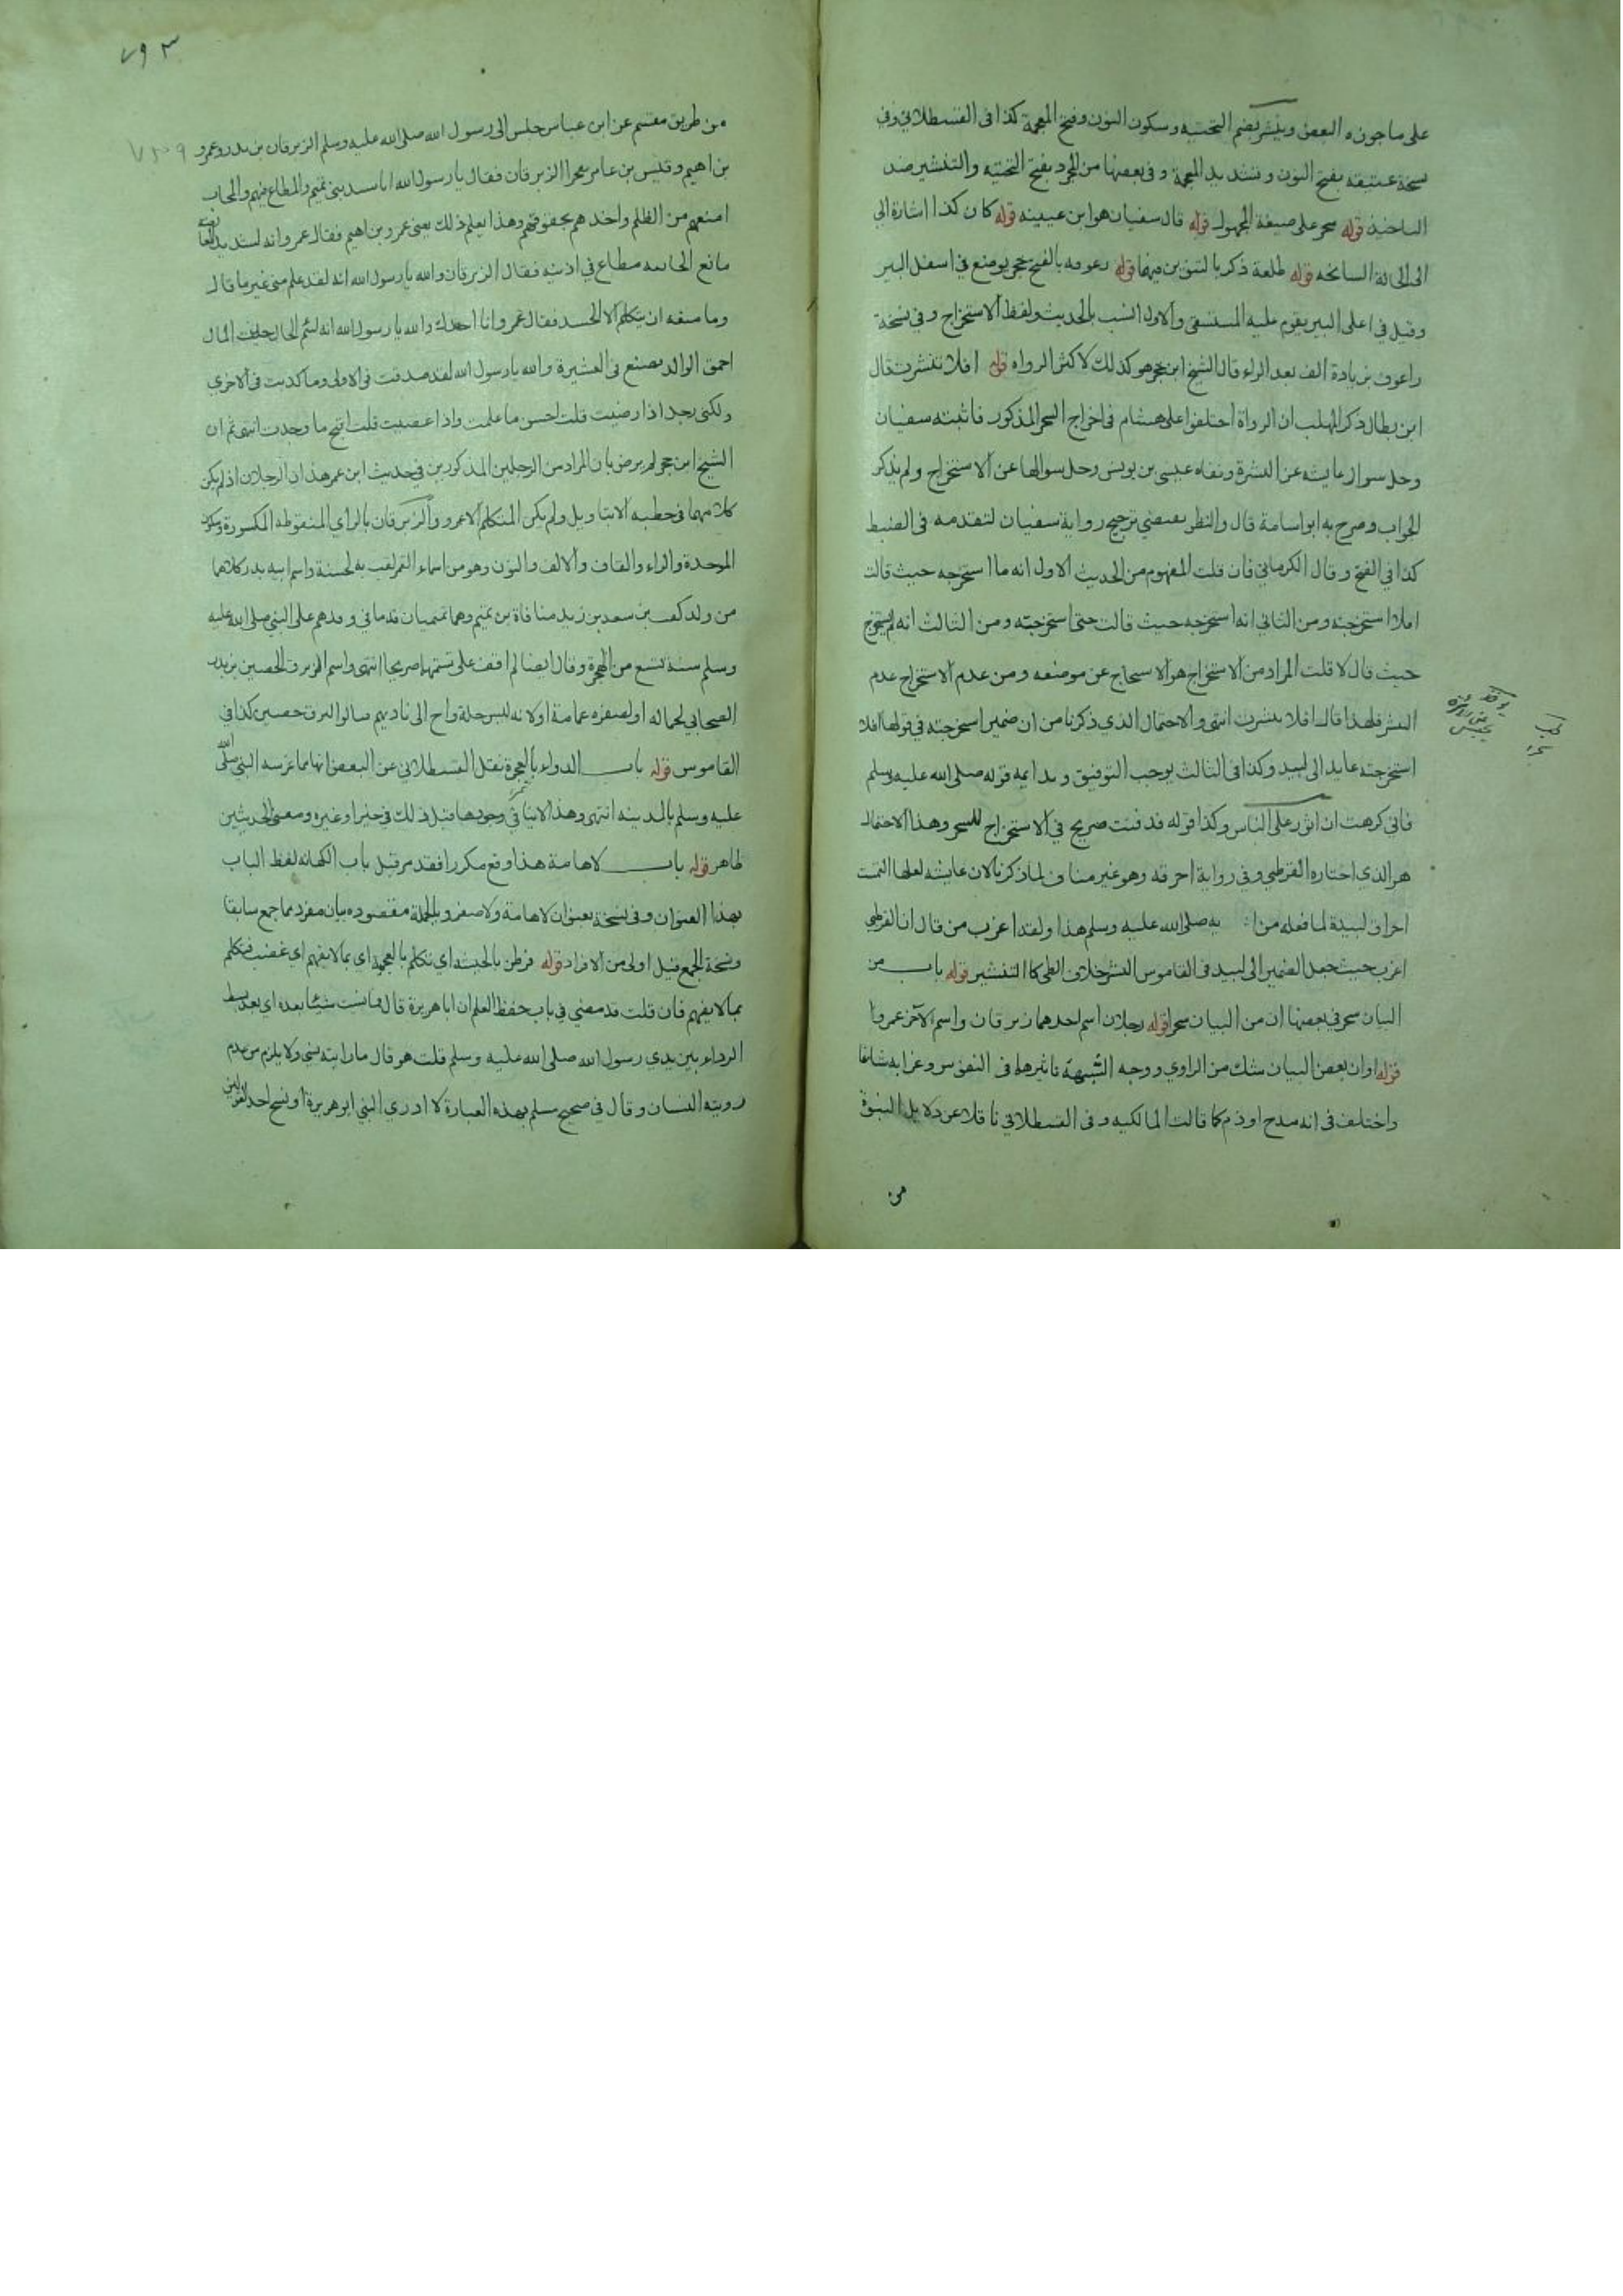 على ما جوزه البعض وينشر بضم التحتيه وسكون النون وفتح المعجمة كذا فى القسطلاني وفي
نسخة عتيقه بفتح النون وتشديد المعجمة وفى بعضها من المجرد بفتح التحتيه والتنشير ضد
قوله سحر على صيغة المجهول قوله قال سفيان هو ابن عيينه قوله كان كذا اشارة الى
الى الحالة السانحه قوله طلعة ذكر بالتنوين فيهما قوله رعوفه بالفتح حجر يوضع في اسفل البير
وقيل في اعلى البير يقوم عليه المستسقى والاول انسب بالحديث ولفظ الاستخراج وفي نسخة
راعوفه بزيادة الف بعد الراء قال الشيخ ابن حجر هو كذلك لاكثر الرواه قوله افلا تنشرت قال
ابن بطال ذكر المهلب ان الرواة اختلفوا على هشام فى اخراج السحر المذكور فاثبته سفيان
وجعل سوال عايشه عن النشرة ونفاه عيسى بن يونس وجعل سوالها عن الاستخراج ولم يذكر
الجواب وصرح به ابو اسامة قال والنظر يقتضي ترجيح رواية سفيان لتقدمه فى الضبط
كذا في الفتح وقال الكرماني فان قلت المفهوم من الحديث الاول انه ما استخرجه حيث قالت
افلا استخرجته ومن الثاني انه استخرجه حيث قالت حتى استخرجته ومن الثالث انه لم يستخرج
حيث قال لا قلت المراد من الاستخراج هو الاستخراج عن موضعه ومن عدم الاستخراج عدم
النشر فلهذا قال افلا تنشرت انتهى والاحتمال الذي ذكرنا من ان ضمير استخرجته في قولها افلا
استخرجته عايد الى لبيد وكذا فى الثالث يوجب التوفيق ويدا قوله صلى الله عليه وسلم
فاني كرهت ان اثور على الناس وكذا قوله قد فنت صريح في الاستخراج للسحر وهذا الاحتمال
هو الذي اختاره القرطبي وفي رواية احرقه وهو غير مناف لما ذكرنا لان عايشه لعلها التمست
احراق لبيدة لما فعله من به صلى الله عليه وسلم هذا ولقد اغرب من قال ان القرطبي
اغرب حيث جعل الضمير الى لبيد فى القاموس النشر خلاف الطى كالتنشير قوله باب من
البيان سحر في بعضها ان من البيان سحرا قوله رجلان اسم احدهما زبرقان واسم الآخر عمرو
قوله او ان بعض البيان شك من الراوي ووجه الشبهة تاثيرها فى النفوس وغرابة شانها
واختلف فى انه مدح او ذم كما قالت المالكيه وفى القسطلاني ناقلا عن دلايل النبوة
من
٧٩٣
من طريق مقسم عن ابن عباس جلس الى رسول الله صلى الله عليه وسلم الزبرقان بن بدر وعمرو
بن اهيم وقيس بن عاصم الزبرقان فقال يا رسول الله انا سيد بنى تميم والمطاع فيهم والمجاب
امنعهم من الظلم واخذ لهم بحقوقهم وهذا يعلم ذلك يعنى عمرو بن اهيم فقال عمرو انه لشديد العارضه
مانع الجانبه مطاع في اذنيه فقال الزبرقان والله يا رسول الله انه لقد علم منى غير ما قال
وما منعه ان يتكلم الا الحسد فقال عمرو انا احسدك والله يا رسول الله انه لئيم الخال حديث المال
احمق الوالد مضيع فى العشيرة والله يا رسول الله لقد صدقت فى الاولى وما كذبت فى الاخرى
ولكنى رجل اذا رضيت قلت احسن ما علمت واذا غضبت قلت اقبح ما وجدت انتهى ثم ان
الشيخ ابن حجر لم يرض بان المراد من الرجلين المذكورين فى حديث ابن عمر هذان الرجلان اذ لم يكن
كلامهما فى خطبه الا بتاويل ولم يكن المتكلم الا عمرو والزبرقان بالزاي المنقوطه المكسورة وسكون
الموحدة والراء والقاف والالف والنون وهو من اسماء القمر لقب به لحسنه واسم ابيه بدر كلاهما
من ولد كعب بن سعد بن زيد مناة بن تميم وهما تميميان قدما في وفدهم على النبي صلى الله عليه
وسلم سنة تسع من الهجرة وقال ايضا لم اقف على تسميتهما صريحا انتهى واسم الزبرقان الحصين بن بدر
الصحابي لجماله او لصفرة عمامته او لانه لبس حلة وراح الى ناديهم فقالوا زبرق حصين كذا في
القاموس قوله باب الدواء بالعجوة نقل القسطلاني عن البعض انها مما غرسه النبي صلى الله
عليه وسلم بالمدينه انتهى وهذا لا ينافي وجودها قبل ذلك فى خيبر او غيره ومعنى الحديثين
ظاهر قوله باب لا هامة هذا وقع مكررا فقد مر قبل باب الكهانه لفظ الباب
بهذا العنوان وفى نسخة بعنوان لا هامة ولا صفر وبالجملة مقصوده بيان مفرد مما جمع سابقا
ونسخة الجمع قيل اولى من الافراد قوله فرطن بالحبشه اي تكلم بالعجمة اي بما لا يفهم اي غضب فتكلم
بما لا يفهم فان قلت قد مضى في باب حفظ العلم ان ابا هريرة قال فما نسيت شيئا بعده اي بعد بسط
الرداء بين يدي رسول الله صلى الله عليه وسلم قلت هو قال ما رايته نسي ولا يلزم من عدم
رويته النسيان وقال في صحيح مسلم بهذه العبارة لا ادري انسي ابو هريرة او نسخ احد القولين